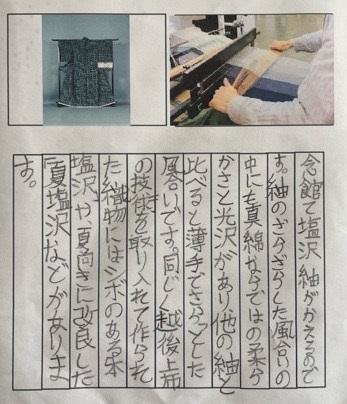 念館で塩沢紬がかえるので
す。紬のざらざらした風合いの
中にも真綿ならではの柔ら
かさと光沢があり他の紬と
比べると薄手でさらっとした
風合いです。同じく越後上布
の技術を取り入れて作られ
た織物にはシボのある本
塩沢、や夏向きに改良した
『夏塩沢などがありま
す。